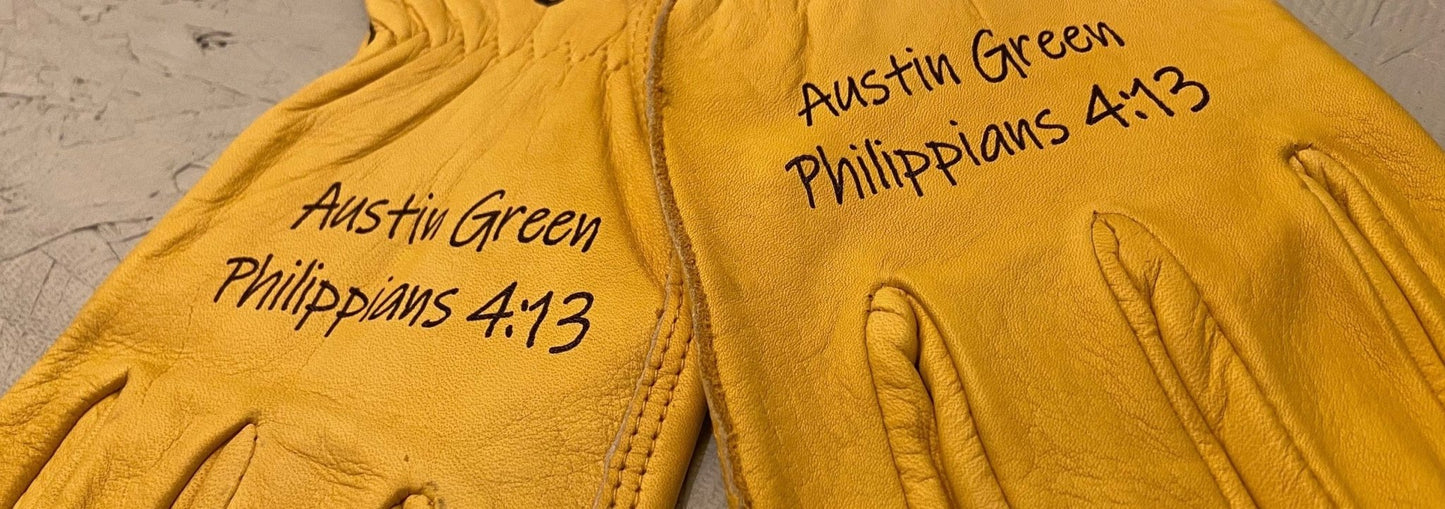 Austin Green
Philippians 4:13
Austin Green
Philippians 4:13